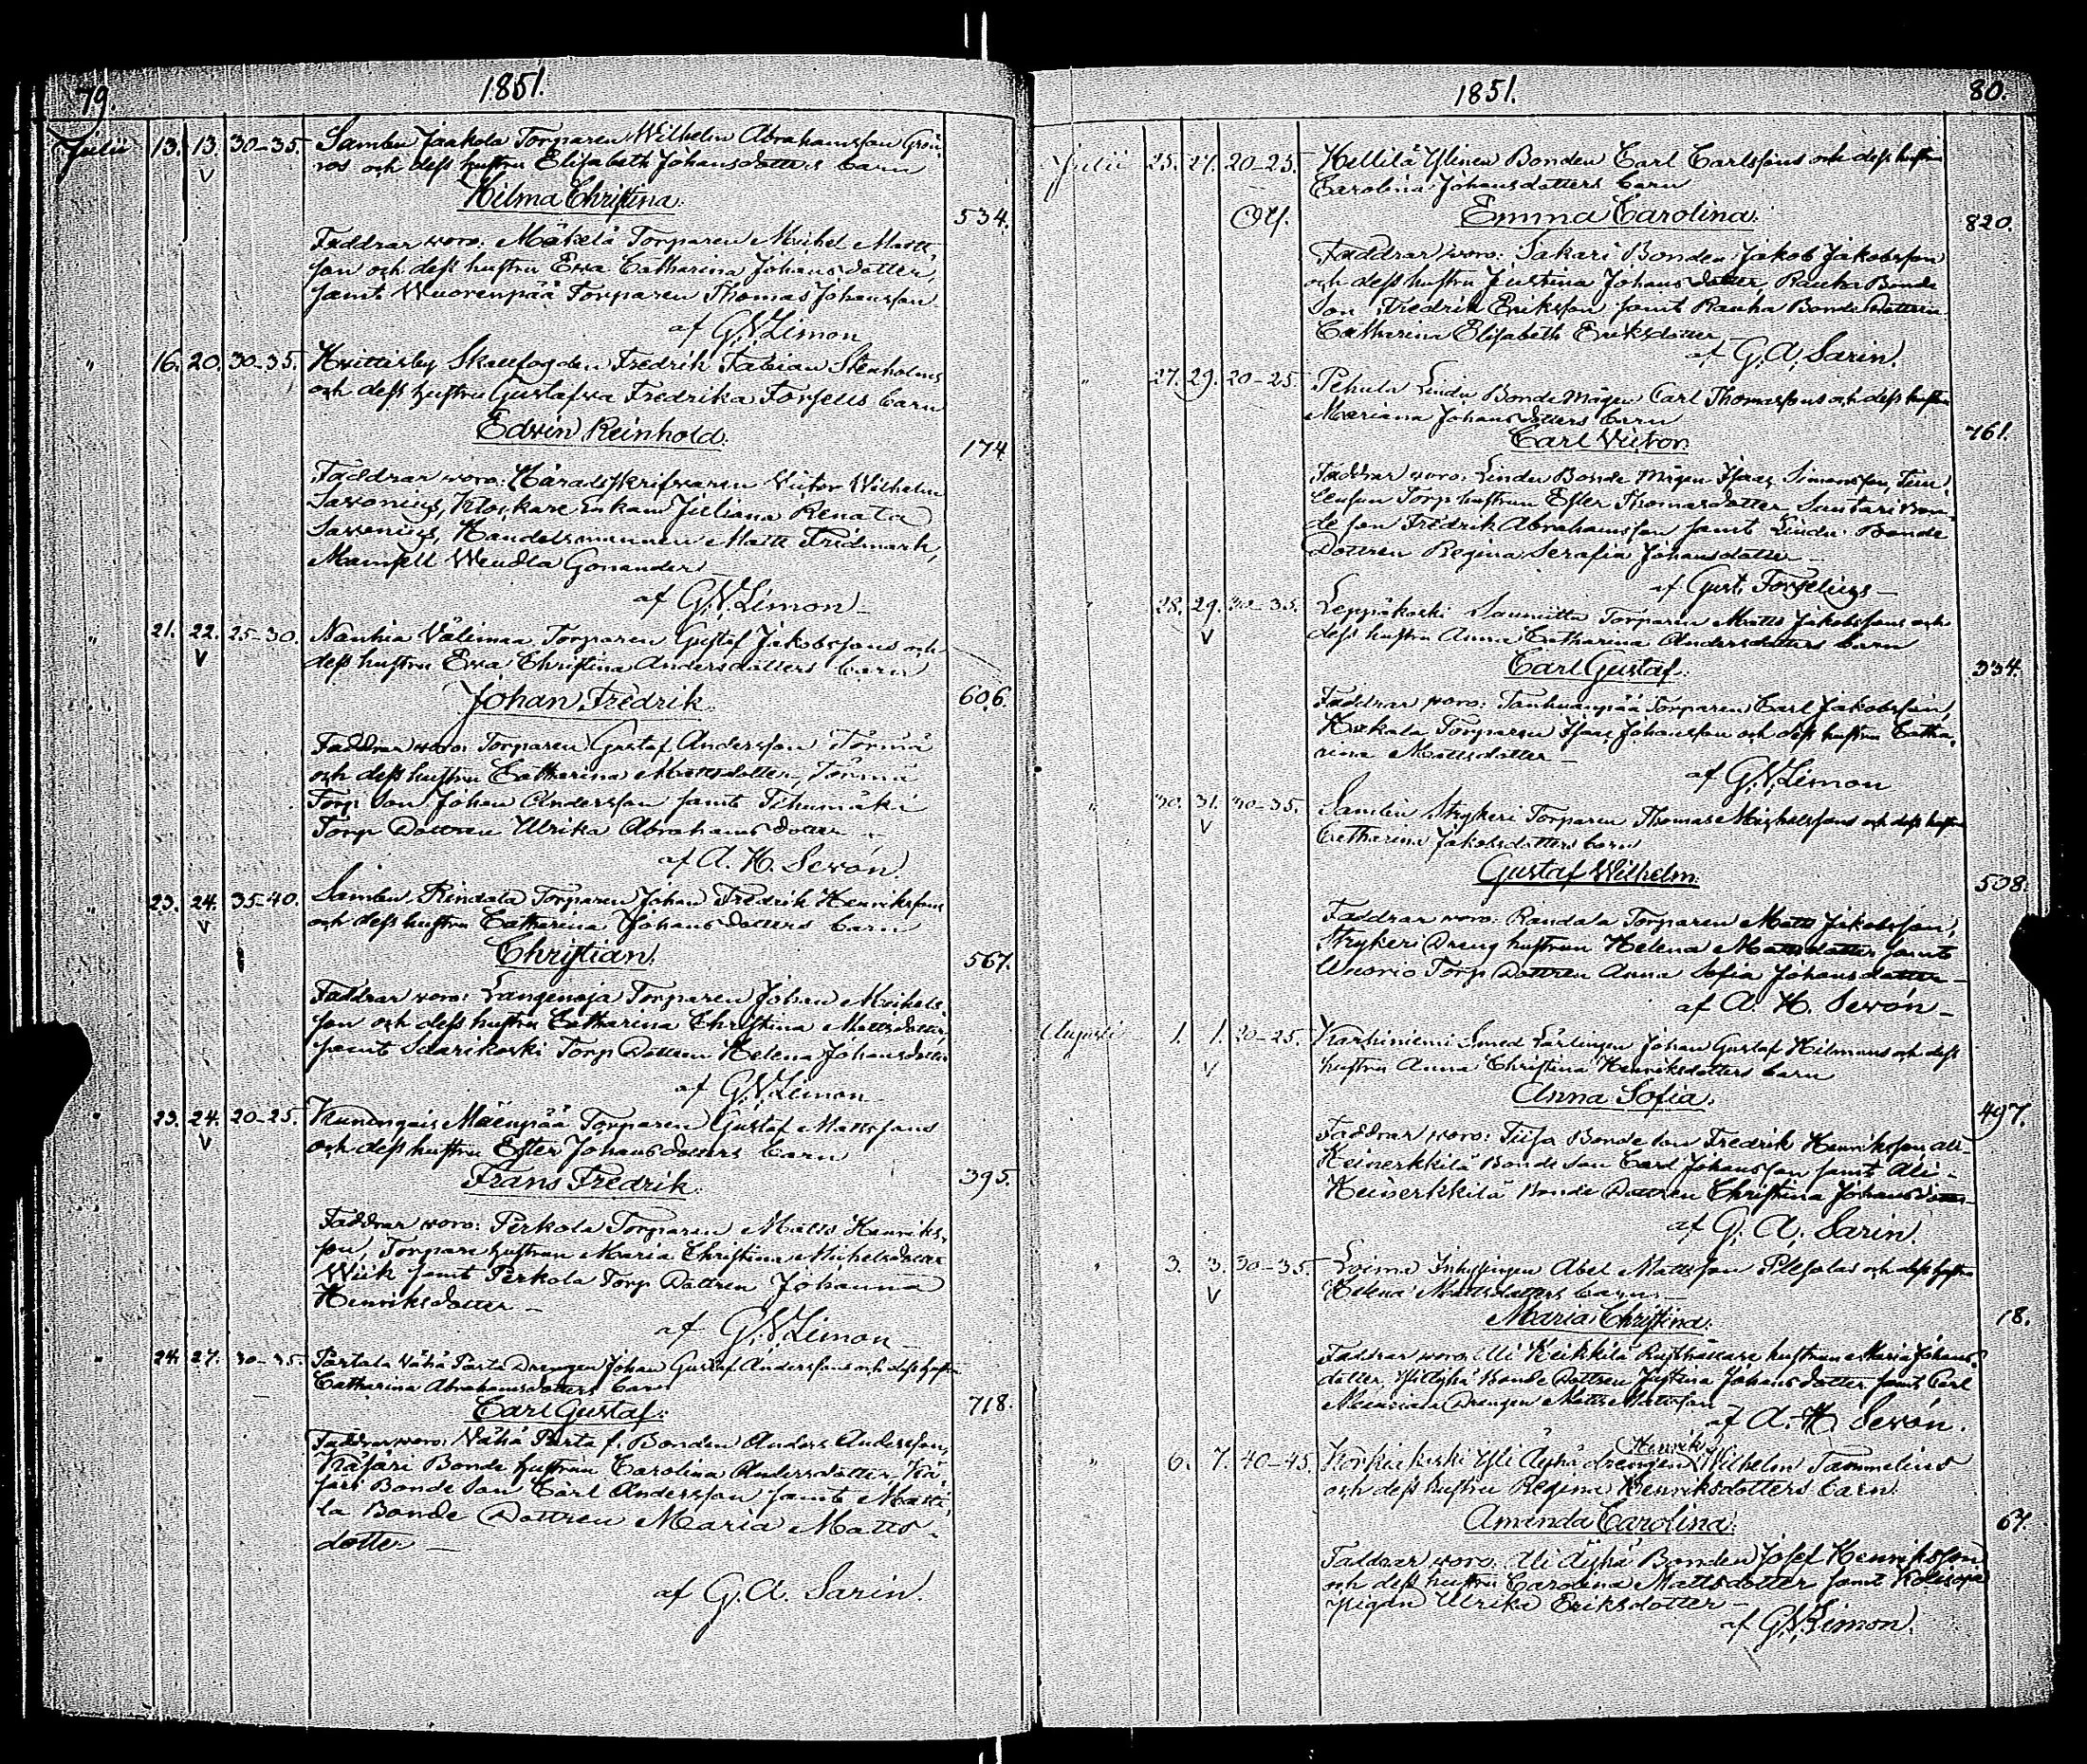 79.
1851.
Julii 13. 13. 30-35. Sambu Jaakola Torparen Wilhelm Abrahamsson Grön-
roos och dess hustru Elisabeth Johansdotters barn
Hilma Christina.
534.
Faddrar woro: Mäkelä Torparen Michel Matts-
son och dess hustru Ewa Catharina Johansdotter,
samt Wuorenpää Torparen Thomas Johansson
af G.W. Limon
" 16. 20. 30-35. Fredrik Fabian Stenholms
och dess hustru Gustafwa Fredrika Forsells barn
Edvin Reinhold.
174
Faddrar woro: Häradsskrifwaren Victor Wilhelm
Savonius, Klockare Enkan Juliana Renata
Savonius, Handelsmannen Matts Fredmark,
Mamsell Wendla Gonander
af G.W. Limon
" 21. 22. 25-30. Nauhia Välimaa Torparen Gustaf Jakobssons och
dess hustru Ewa Christina Andersdotters barn
Johan Fredrik.
606.
Faddrar woro: Torparen Gustaf Andersson Törmä
och dess hustru Catharina Mattsdotter, Törmä
Torp Son Johan Andersson samt Tihumäki
Torp Dottren Ulrika Abrahamsdotter
af A. H. Sewón.
" 23. 24. 35-40. Sambu Rindala Torparen Johan Fredrik Henrikssons
och dess hustru Catharina Johansdotters barn
Christian.
567.
Faddrar woro: Langenoja Torparen Johan Mickels-
son och dess hustru Catharina Christina Mattsdotter,
samt Saarikoski Torp Dottren Helena Johansdotter
af G.W. Limon
" 23. 24. 20-25. Kuningais Mäenpää Torparen Gustaf Mattssons
och dess hustru Ester Johansdotters barn
Frans Fredrik.
395.
Faddrar woro: Perkola Torparen Matts Henriks-
son, Torpare hustrun Maria Christina Michelsdotter
Wiik samt Perkola Torp Dottren Johanna
Henriksdotter
af G.W. Limon
" 24. 27. 30-35. Partala Vähä Parta Drengen Johan Gustaf Anderssons och dess hustru
Catharina Abrahamsdotters barn
Carl Gustaf.
718.
Faddrar woro: Vähä Parta f. Bonden Anders Andersson,
Käjäri Bonde hustrun Carolina Andersdotter, Kä-
järi Bonde Son Carl Andersson samt
la Bonde Dottren Maria Matts-
dotter
af G. A. Sarin.
1851.
80.
Julii 25. 27. 20-25. Hellilä Ylinen Bonden Carl Carlssons och dess hustru
Carolina Johansdotters barn
Emma Carolina.
820.
Faddrar woro: Sakari Bonden Jakob Jakobsson
och dess hustru Justina Johansdotter, Rauha Bonde
Son Fredrik Eriksson samt Rauha Bonde Dottren
Catharina Elisabeth Eriksdotter
af G. A. Sarin.
" 27. 29. 20-25. Pehula Lindu Bonde Mågen Carl Thomassons och dess hustru
Mariana Johansdotters barn
Carl Victor.
761.
Faddrar woro: Lindu Bonde Mågen Isaac Simonsson,
Torp hustrun Ester Thomasdotter, Suutari Bon-
de son Fredrik Abrahamsson samt Lindu Bonde
Dottren Regina Serafia Johansdotter
af Gust. Forselius
" 28. 29. 30-35. Leppäkoski Torparen Matts Jakobssons och
dess hustru Anna Catharina Andersdotters barn
Carl Gustaf.
334.
Faddrar woro: Tanhuanpää Torparen Carl Jakobsson,
Torparen Isaac Johansson och dess hustru Catha-
rina Mattsdotter
af G.W. Limon
" 30. 31. 30-35. Strykeri Torparen Thomas Michelssons och dess hustru
Catharina Jakobsdotters barn
Gustaf Wilhelm.
508.
Faddrar woro: Randala Torparen Matts Jakobsson,
Strykeri Dreng hustrun Helena Mattsdotter samt
Wuorio Torp Dottren Anna Sofia Johansdotter
af A. H. Sewón
Augusti 1. 1. 20-25. Karhiniemi Smed Lärlingen Johan Gustaf Hilmans och dess
hustru Anna Christina Henriksdotters barn
Anna Sofia.
497.
Faddrar woro: Bonde Son Fredrik Henriksson Ali-
Keinerkkilä Bonde Son Carl Johansson samt Ali-
Keinerkkilä Bonde Dottren Christina Johansdotter
af G. A. Sarin.
" 3. 3. 30-35. Loima Inhysingen Abel Mattsson och dess hustru
Helena Mattsdotters barn
Maria Christina.
18.
Faddrar woro: Ali Heikkilä Rusthållare hustrun Maria Johans-
dotter, Bonde Dottren Justina Johansdotter samt Carl
Drengen Matts Mattsson
af A. H. Sewón.
" 6. 7. 40-45. Yli Äyhö drengen Henrik Wilhelm Tammelins
och dess hustru Regina Henriksdotters barn
Amanda Carolina.
67.
Faddrar woro: Ali Äyhö Bonden Josef Henriksson
och dess hustru Carolina Mattsdotter samt Kolisoja
pigan Ulrika Eriksdotter
af G.W. Limon.